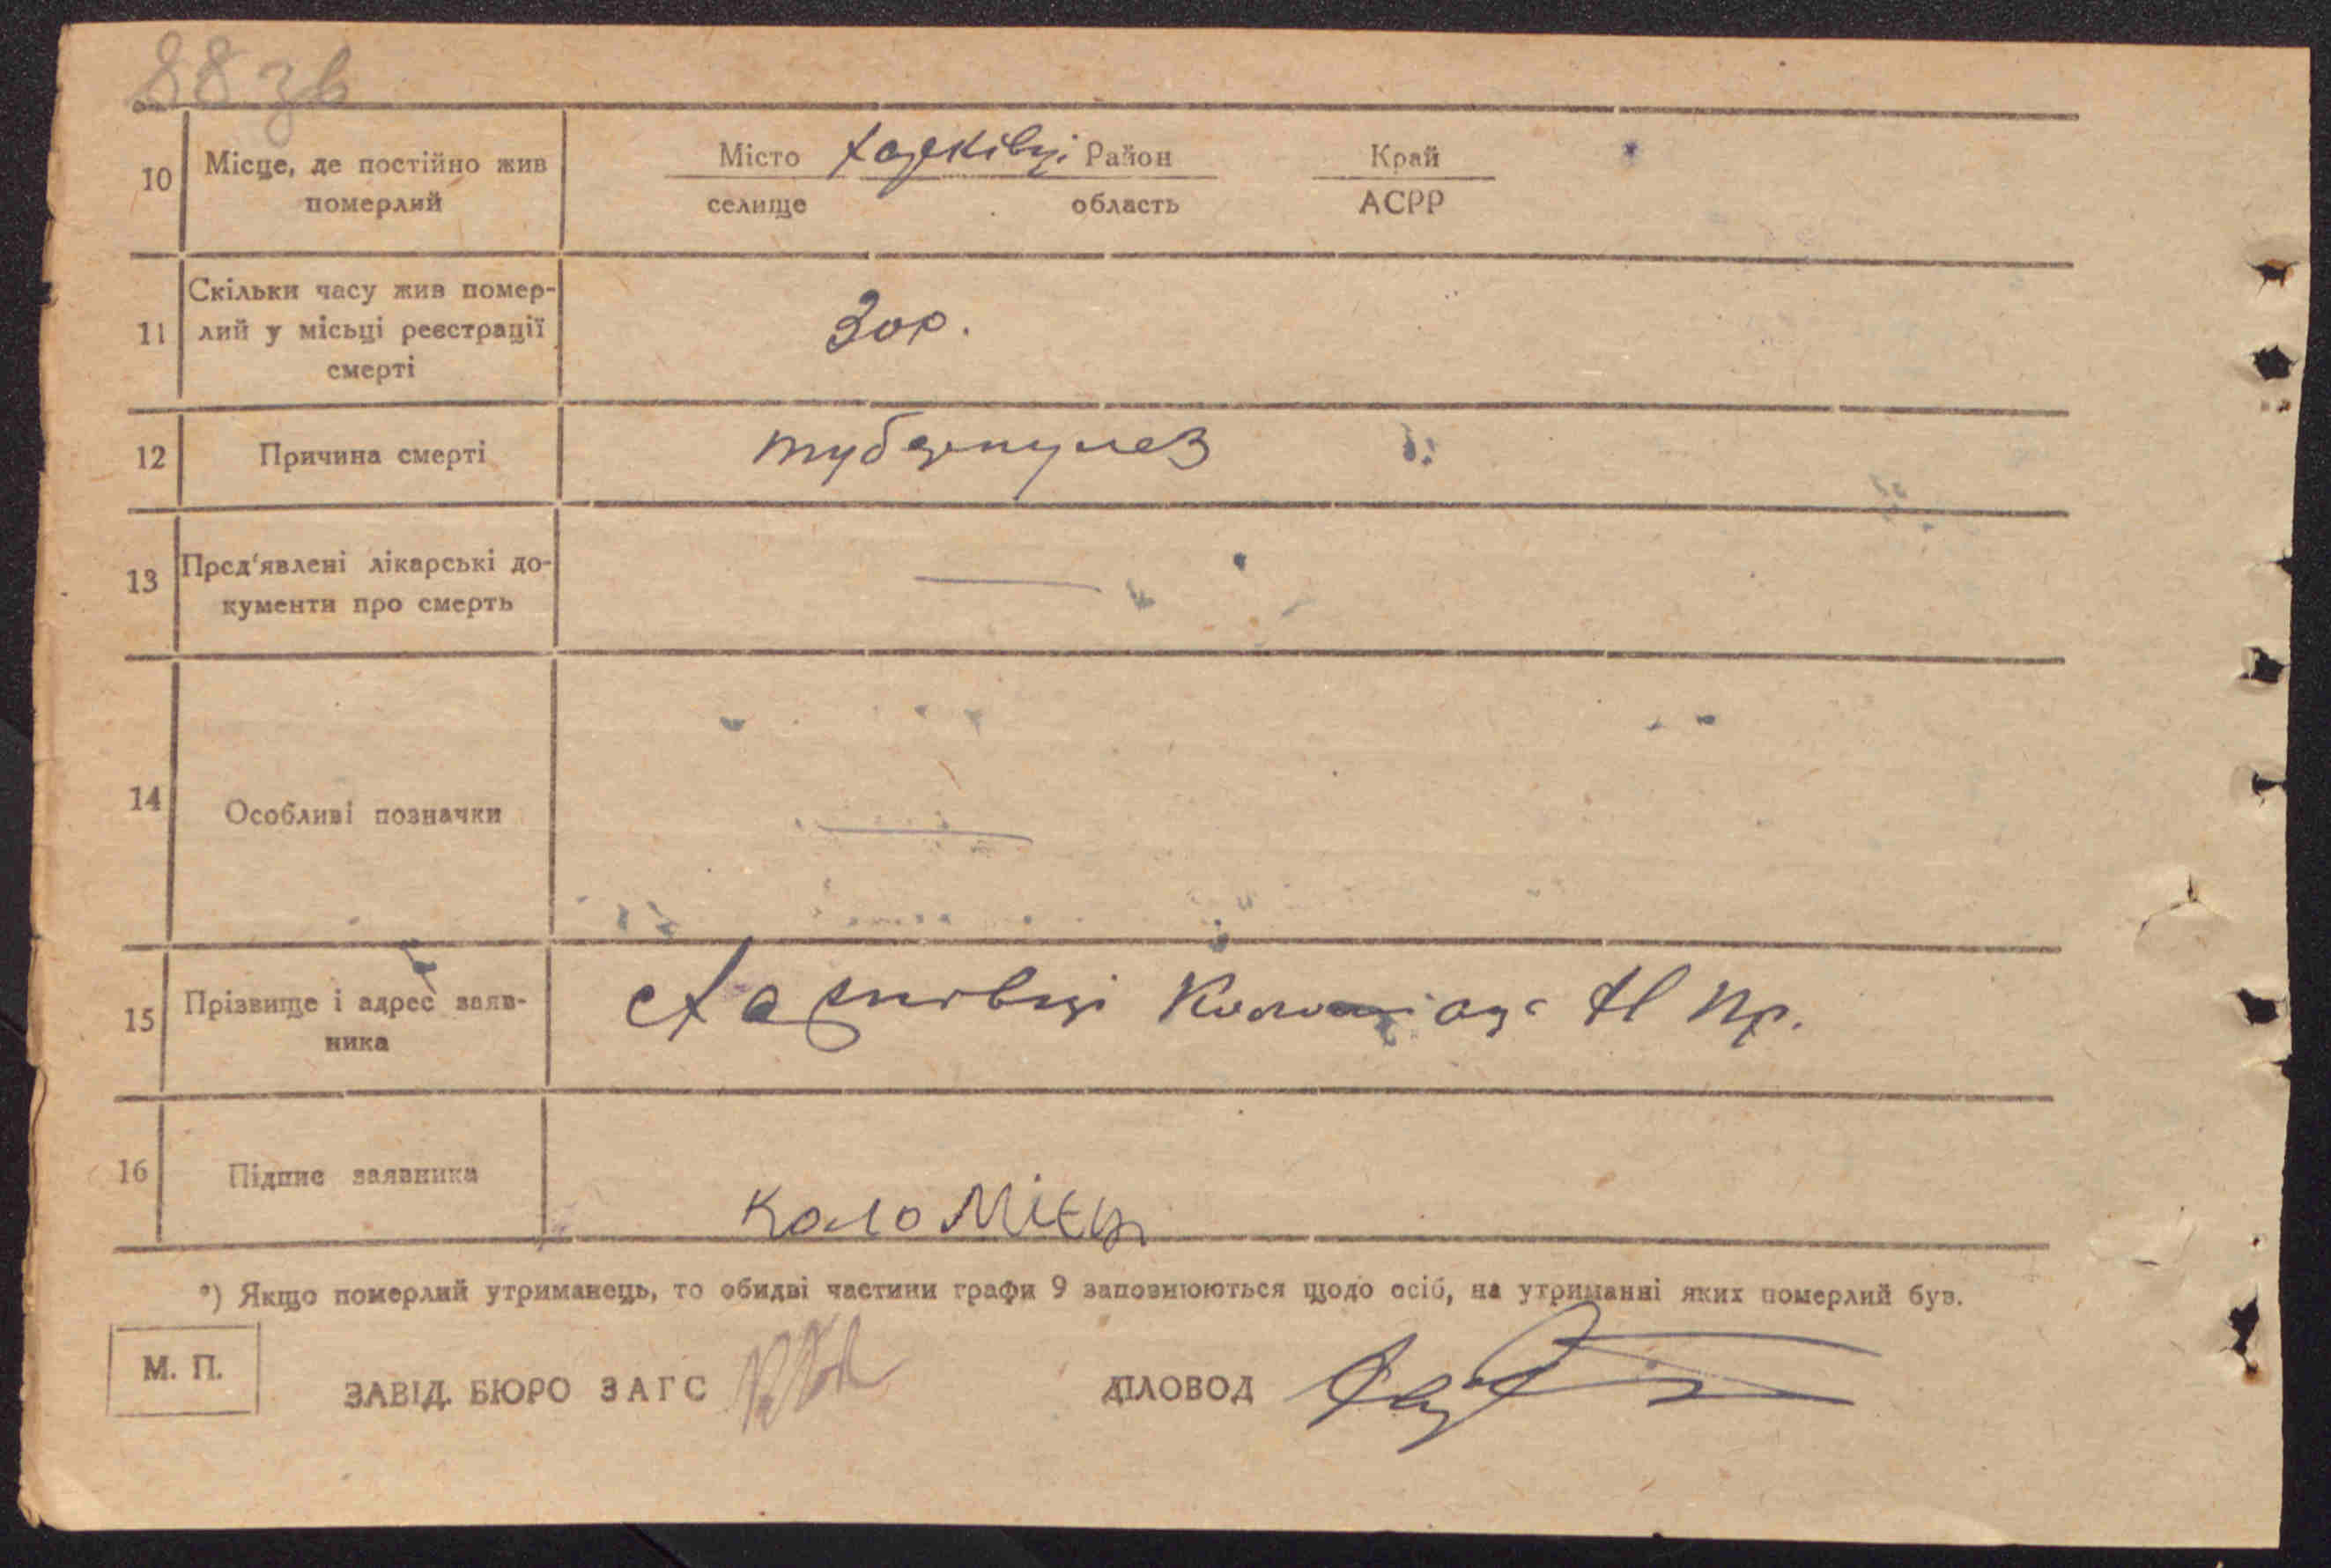 88 зв
10 Місце, де постійно жив Місто Хазяківці Район Край
померлий селище область АСРР
Скільки часу жив помер-
11 лий у місьці реєстрації 30р.
смерті
12 Причина смерті туберкулез
13 Пред'явлені лікарські до- —
кументи про смерть
14 Особливі позначки —
15 Прізвище і адрес заяв- Н Пр.
ника
16 Підпис заявника КолоМієць
*) Якщо померлий утриманець, то обидві частини графи 9 заповнюються щодо осіб, на утриманні яких померлий був.
М. П.
ЗАВІД. БЮРО ЗАГС ДІЛОВОД